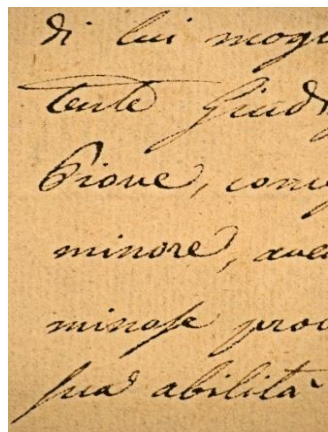 di lui mog
tente Giud
Piove, con
minore, ave
minose pro
sua abilità